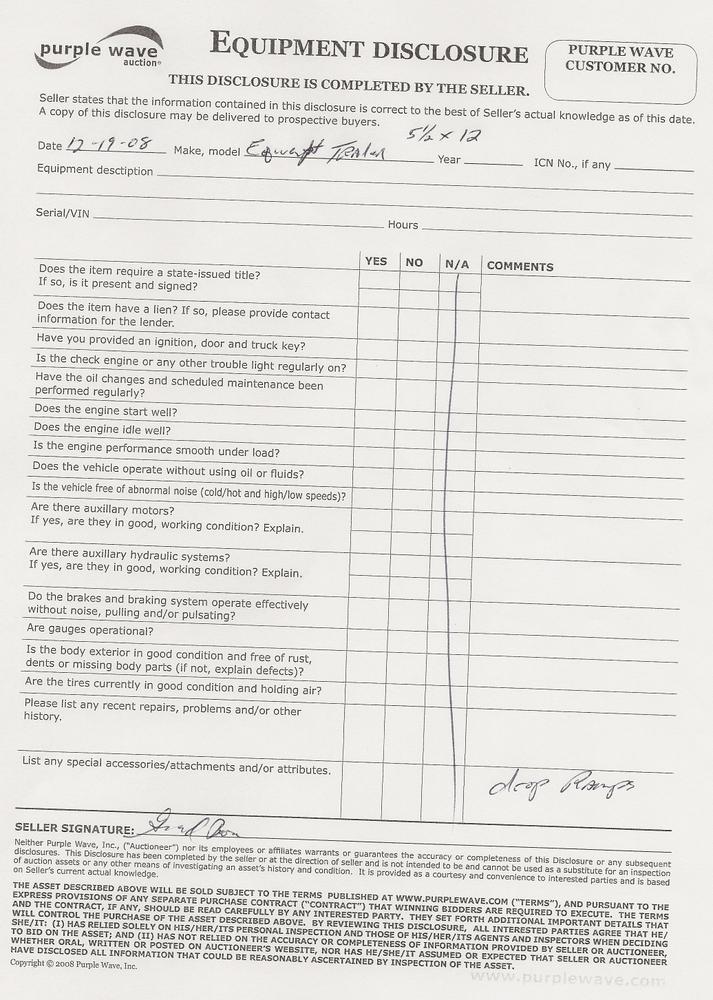 purple wave
auction®
EQUIPMENT DISCLOSURE
THIS DISCLOSURE IS COMPLETED BY THE SELLER.
PURPLE WAVE
CUSTOMER NO.
Seller states that the information contained in this disclosure is correct to the best of Seller's actual knowledge as of this date.
A copy of this disclosure may be delivered to prospective buyers.
5½ x 12
Date 12-19-08 Make, model Equipt Trailer Year ICN No., if any
Equipment desctiption
Serial/VIN Hours
YES NO N/A COMMENTS
Does the item require a state-issued title?
If so, is it present and signed?
Does the item have a lien? If so, please provide contact
information for the lender.
Have you provided an ignition, door and truck key?
Is the check engine or any other trouble light regularly on?
Have the oil changes and scheduled maintenance been
performed regularly?
Does the engine start well?
Does the engine idle well?
Is the engine performance smooth under load?
Does the vehicle operate without using oil or fluids?
Is the vehicle free of abnormal noise (cold/hot and high/low speeds)?
Are there auxillary motors?
If yes, are they in good, working condition? Explain.
Are there auxillary hydraulic systems?
If yes, are they in good, working condition? Explain.
Do the brakes and braking system operate effectively
without noise, pulling and/or pulsating?
Are gauges operational?
Is the body exterior in good condition and free of rust,
dents or missing body parts (if not, explain defects)?
Are the tires currently in good condition and holding air?
Please list any recent repairs, problems and/or other
history.
List any special accessories/attachments and/or attributes.
drop Ramps
SELLER SIGNATURE:
Neither Purple Wave, Inc., ("Auctioneer") nor its employees or affiliates warrants or guarantees the accuracy or completeness of this Disclosure or any subsequent
disclosures. This Disclosure has been completed by the seller or at the direction of seller and is not intended to be and cannot be used as a substitute for an inspection
of auction assets or any other means of investigating an asset's history and condition. It is provided as a courtesy and convenience to interested parties and is based
on Seller's current actual knowledge.
THE ASSET DESCRIBED ABOVE WILL BE SOLD SUBJECT TO THE TERMS PUBLISHED AT WWW.PURPLEWAVE.COM ("TERMS"), AND PURSUANT TO THE
EXPRESS PROVISIONS OF ANY SEPARATE PURCHASE CONTRACT ("CONTRACT") THAT WINNING BIDDERS ARE REQUIRED TO EXECUTE. THE TERMS
AND THE CONTRACT, IF ANY, SHOULD BE READ CAREFULLY BY ANY INTERESTED PARTY. THEY SET FORTH ADDITIONAL IMPORTANT DETAILS THAT
WILL CONTROL THE PURCHASE OF THE ASSET DESCRIBED ABOVE. BY REVIEWING THIS DISCLOSURE, ALL INTERESTED PARTIES AGREE THAT HE/
SHE/IT: (I) HAS RELIED SOLELY ON HIS/HER/ITS PERSONAL INSPECTION AND THOSE OF HIS/HER/ITS AGENTS AND INSPECTORS WHEN DECIDING
TO BID ON THE ASSET; AND (II) HAS NOT RELIED ON THE ACCURACY OR COMPLETENESS OF INFORMATION PROVIDED BY SELLER OR AUCTIONEER,
WHETHER ORAL, WRITTEN OR POSTED ON AUCTIONEER'S WEBSITE, NOR HAS HE/SHE/IT ASSUMED OR EXPECTED THAT SELLER OR AUCTIONEER
HAVE DISCLOSED ALL INFORMATION THAT COULD BE REASONABLY ASCERTAINED BY INSPECTION OF THE ASSET.
Copyright © 2008 Purple Wave, Inc.
www.purplewave.com